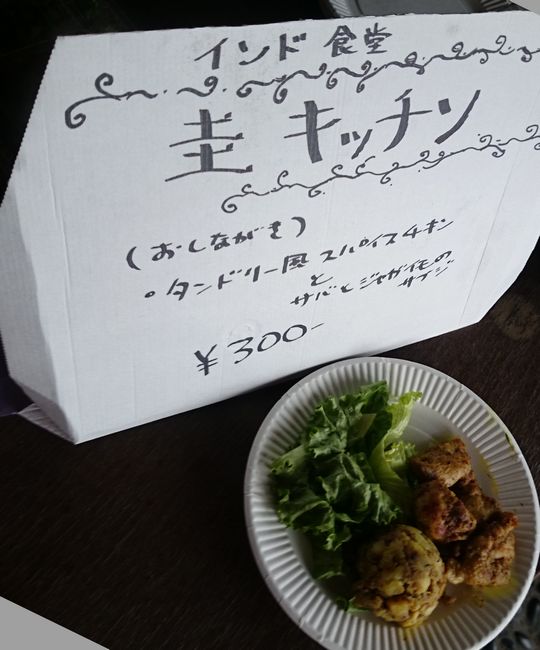 インド 食堂
圭 キッチン
(おしながき)
・タンドリー風 スパイスチキン
と
サバとジャガイモの
サブジ
¥300-